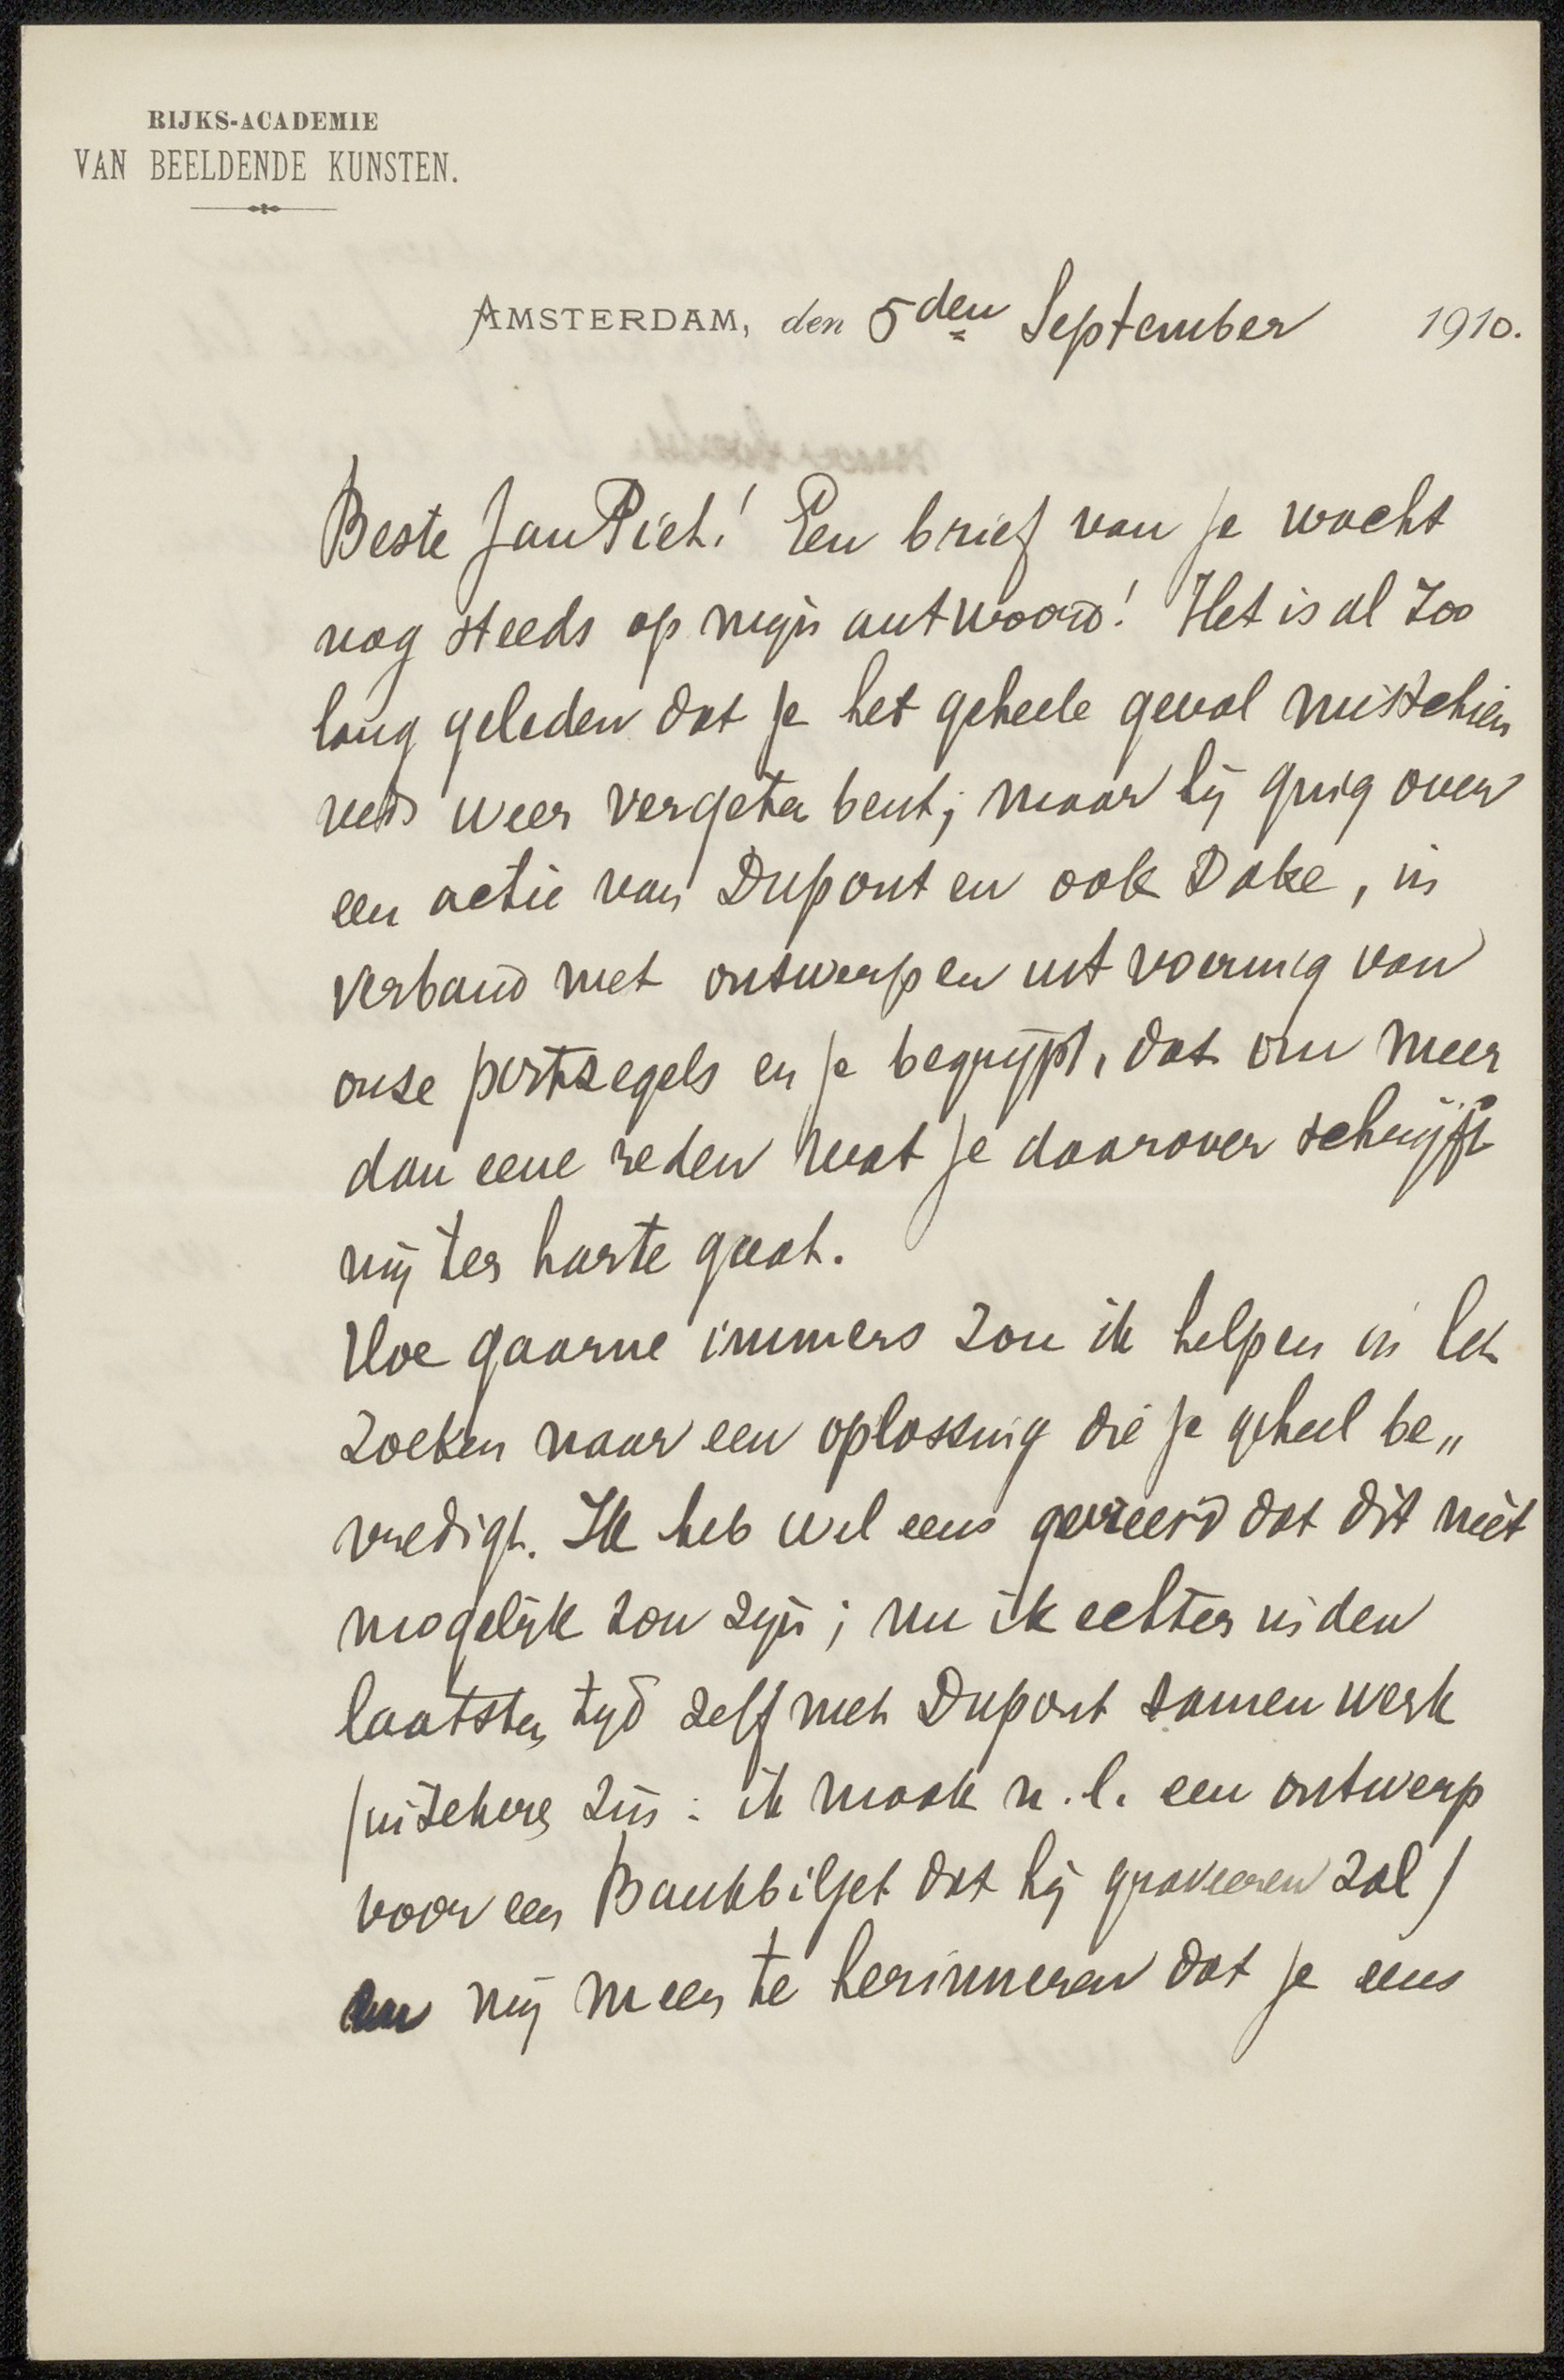 RIJKS-ACADEMIE
VAN BEELDENDE KUNSTEN.
AMSTERDAM, den 5den September 1910.
Beste Jan Piet! Een brief van je wacht
nog steeds op mijn antwoord! Het is al zoo
lang geleden dat je het geheele geval misschien
reeds weer vergeten bent; maar hij ging over
een actie van Dupont en ook Dake, in
verband met ontwerp en uitvoering van
onze postzegels en je begrijpt, dat om meer
dan eene reden wat je daarover schrijft
mij ter harte gaat.
Hoe gaarne immers zou ik helpen in het
zoeken naar een oplossing die je geheel be„
vredigt. Ik heb wel eens gevreesd dat dit niet
mogelijk zou zijn; nu ik echter in den
laatsten tijd zelf met Dupont samen werk
(in zekere zin: ik maak n.l. een ontwerp
voor een Bankbiljet dat hij graveeren zal)
mij meen te herinneren dat je eens